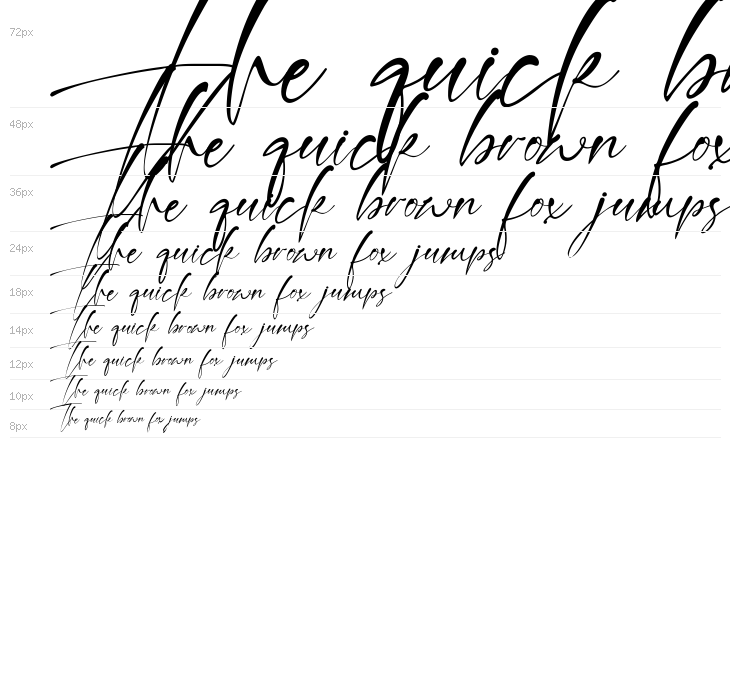 72px The quick b
48px The quick brown fox
36px The quick brown fox jumps
24px The quick brown fox jumps
18px The quick brown fox jumps
14px The quick brown fox jumps
12px The quick brown fox jumps
10px The quick brown fox jumps
8px The quick brown fox jumps